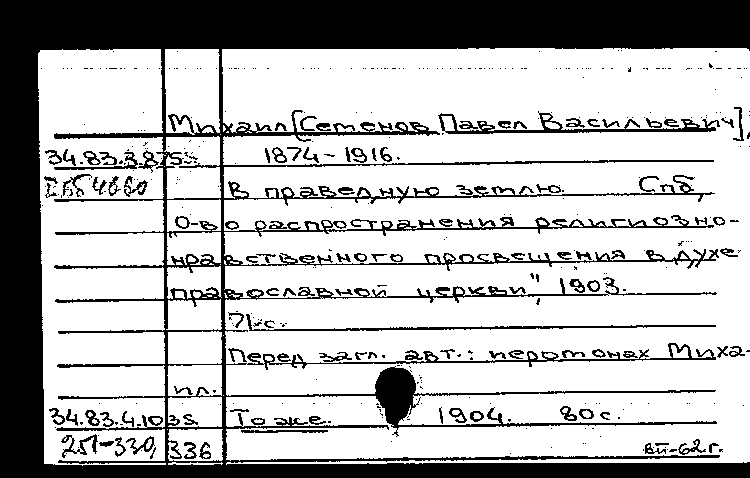 Михаил [Семенов Павел Васильевич],
34.83.3.875 1874-1916.
В праведную землю. Спб,
„О-во распространения религиозно-
нравственного просвещения в духе
православной церкви", 1903.
71 с.
Перед загл. авт.: иеромонах Миха-
ил.
34.83.4.1035 То же. 1904. 80 с.
251-330, 336 ВП-62г.